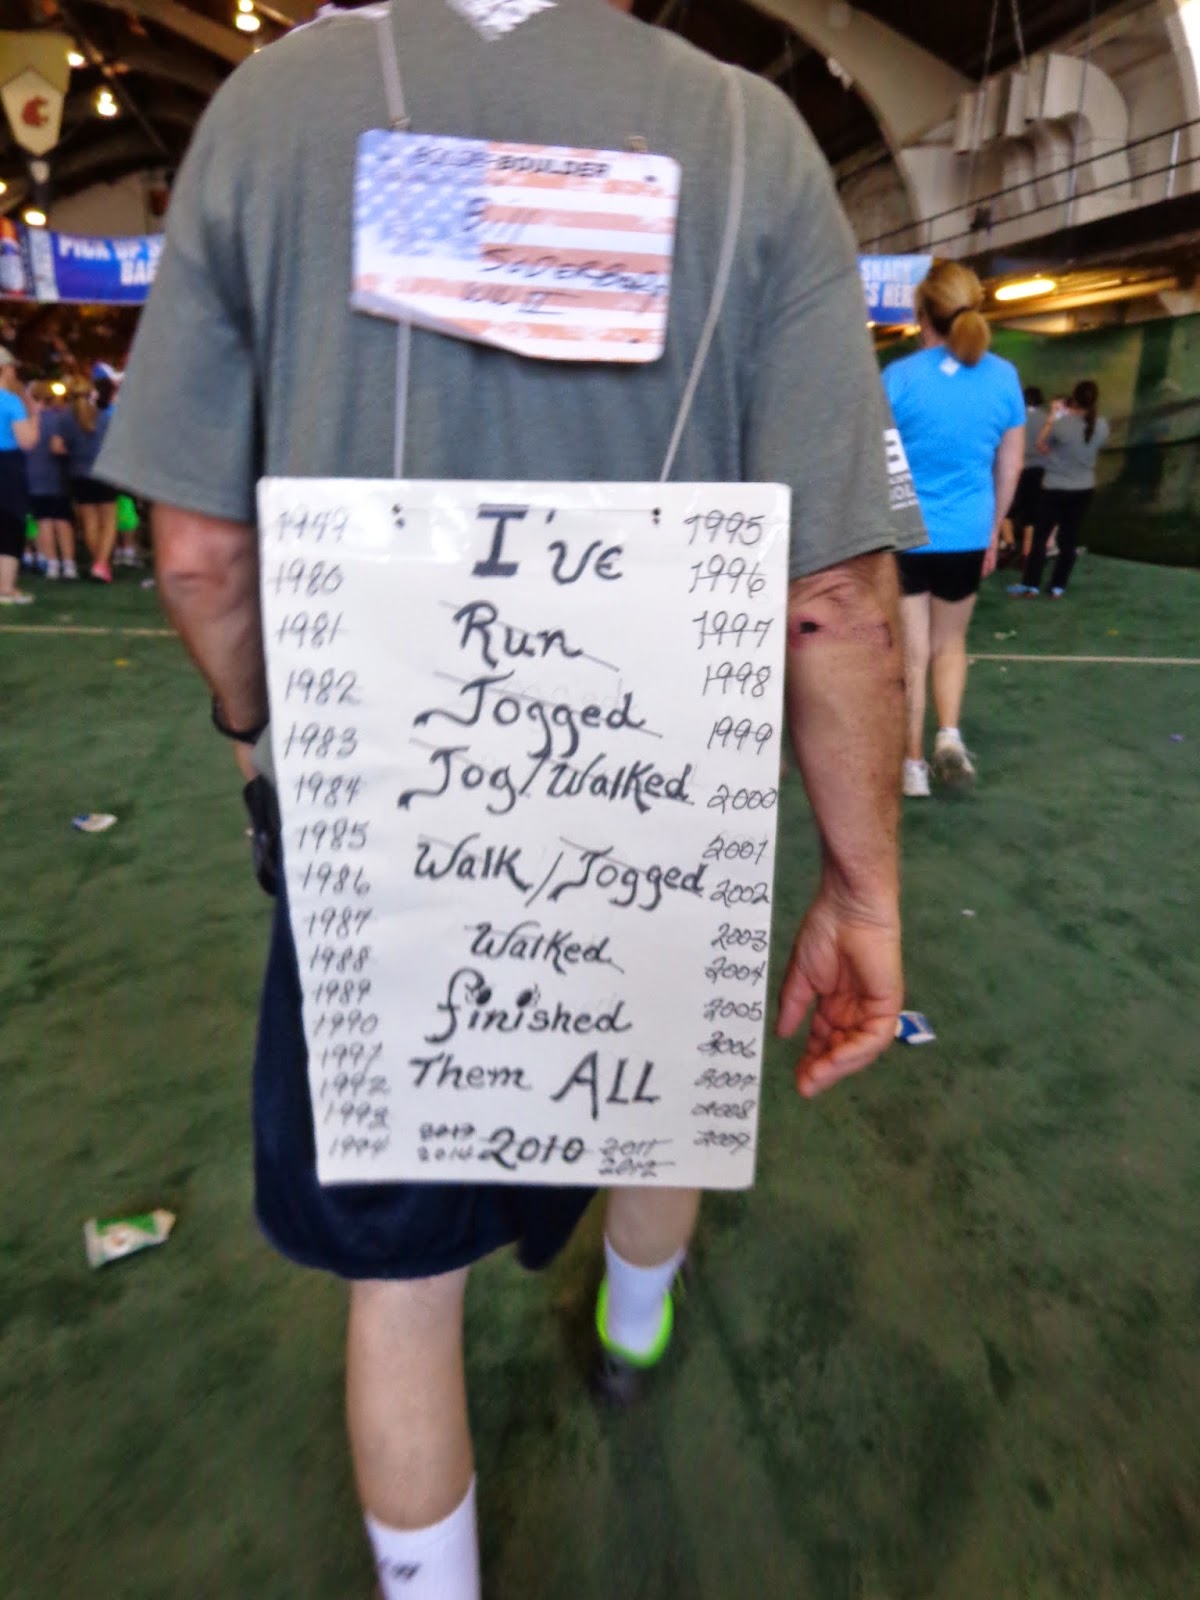 BOLDER-BOULDER
Bill
SODERBORG
WW II
PICK UP
BAG
SNACK
HERE
I've
Run
Jogged
Jog/Walked
Walk/Jogged
Walked
finished
Them ALL
2013 2010 2011
2014 2012
1979
1980
1981
1982
1983
1984
1985
1986
1987
1988
1989
1990
1991
1992
1993
1994
1995
1996
1997
1998
1999
2000
2001
2002
2003
2004
2005
2006
2007
2008
2009